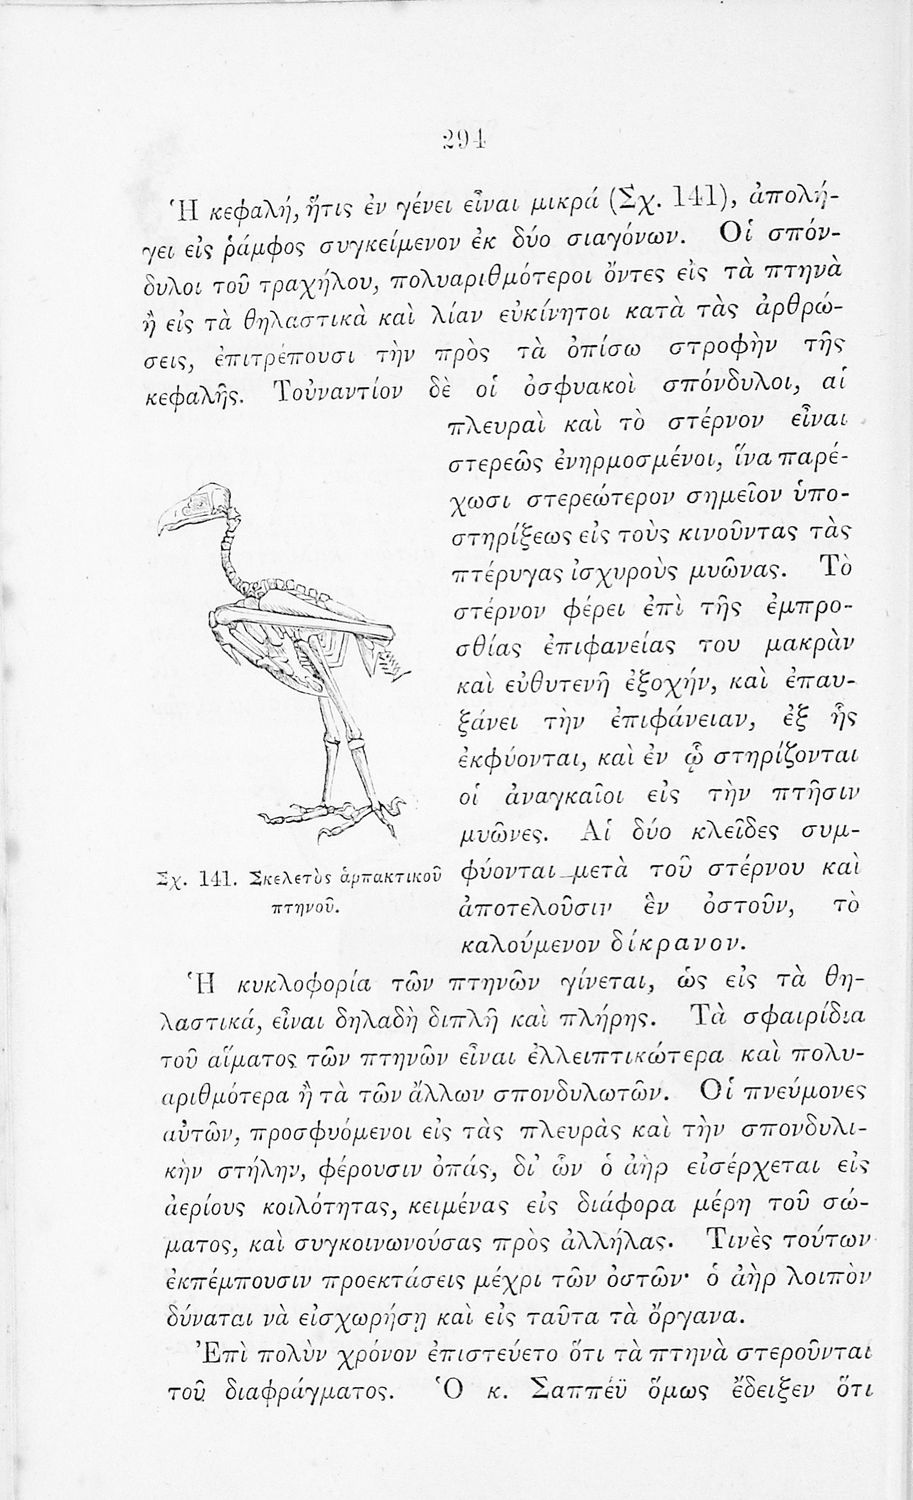 294
Ἡ κεφαλή, ἥτις ἐν γένει εἶναι μικρά (Σχ. 141), ἀπολή-
γει εἰς ῥάμφος συγκείμενον ἐκ δύο σιαγόνων. Οἱ σπόν-
δυλοι τοῦ τραχήλου, πολυαριθμότεροι ὄντες εἰς τὰ πτηνὰ
ἢ εἰς τὰ θηλαστικὰ καὶ λίαν εὐκίνητοι κατὰ τὰς ἀρθρώ-
σεις, ἐπιτρέπουσι τὴν πρὸς τὰ ὀπίσω στροφὴν τῆς
κεφαλῆς. Τοὐναντίον δὲ οἱ ὀσφυακοὶ σπόνδυλοι, αἱ
πλευραὶ καὶ τὸ στέρνον εἶναι
στερεῶς ἐνηρμοσμένοι, ἵνα παρέ-
χωσι στερεώτερον σημεῖον ὑπο-
στηρίξεως εἰς τοὺς κινοῦντας τὰς
πτέρυγας ἰσχυροὺς μυῶνας. Τὸ
στέρνον φέρει ἐπὶ τῆς ἐμπρο-
σθίας ἐπιφανείας του μακρὰν
καὶ εὐθυτενῆ ἐξοχήν, καὶ ἐπαυ-
ξάνει τὴν ἐπιφάνειαν, ἐξ ἧς
ἐκφύονται, καὶ ἐν ᾧ στηρίζονται
οἱ ἀναγκαῖοι εἰς τὴν πτῆσιν
μυῶνες. Αἱ δύο κλεῖδες συμ-
φύονται μετὰ τοῦ στέρνου καὶ
ἀποτελοῦσιν ἓν ὀστοῦν, τὸ
καλούμενον δίκρανον.
Σχ. 141. Σκελετὸς ἁρπακτικοῦ
πτηνοῦ.
Ἡ κυκλοφορία τῶν πτηνῶν γίνεται, ὡς εἰς τὰ θη-
λαστικά, εἶναι δηλαδὴ διπλῆ καὶ πλήρης. Τὰ σφαιρίδια
τοῦ αἵματος τῶν πτηνῶν εἶναι ἐλλειπτικώτερα καὶ πολυ-
αριθμότερα ἢ τὰ τῶν ἄλλων σπονδυλωτῶν. Οἱ πνεύμονες
αὐτῶν, προσφυόμενοι εἰς τὰς πλευρὰς καὶ τὴν σπονδυλι-
κὴν στήλην, φέρουσιν ὀπάς, δι' ὧν ὁ ἀὴρ εἰσέρχεται εἰς
ἀερίους κοιλότητας, κειμένας εἰς διάφορα μέρη τοῦ σώ-
ματος, καὶ συγκοινωνούσας πρὸς ἀλλήλας. Τινὲς τούτων
ἐκπέμπουσιν προεκτάσεις μέχρι τῶν ὀστῶν· ὁ ἀὴρ λοιπὸν
δύναται νὰ εἰσχωρήσῃ καὶ εἰς ταῦτα τὰ ὄργανα.
Ἐπὶ πολὺν χρόνον ἐπιστεύετο ὅτι τὰ πτηνὰ στεροῦνται
τοῦ διαφράγματος. Ὁ κ. Σαππέϋ ὅμως ἔδειξεν ὅτι